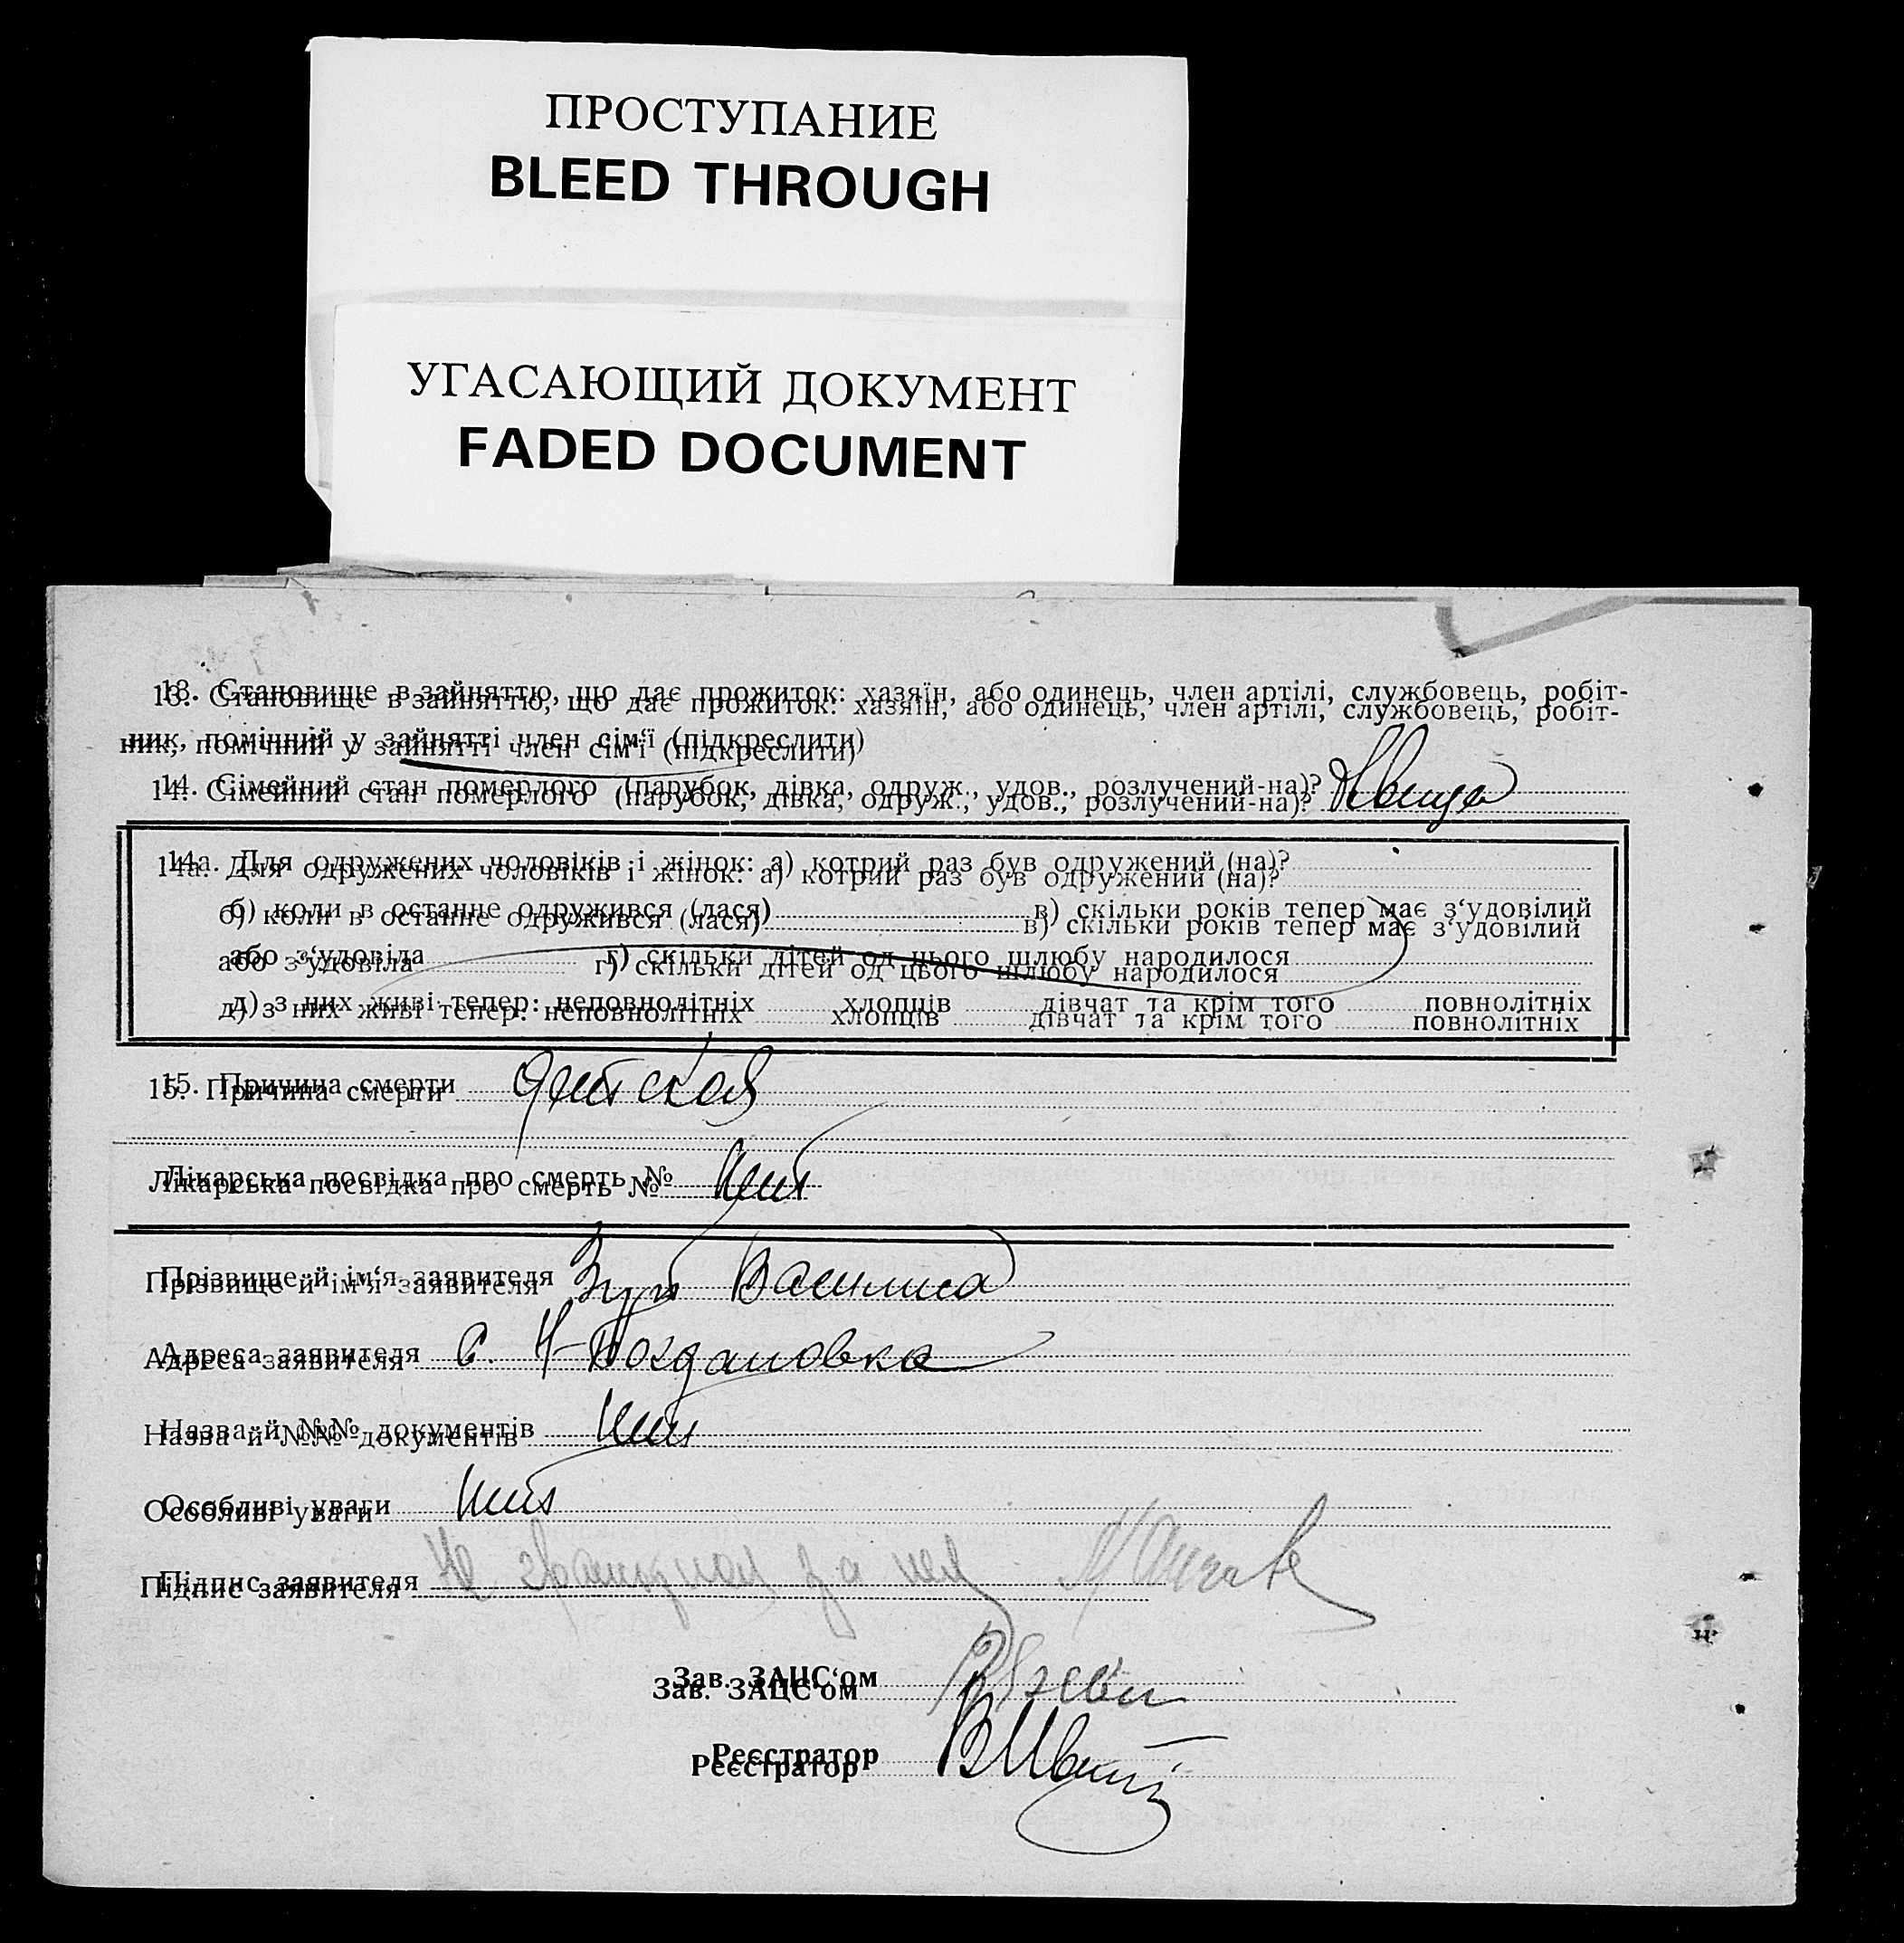 ПРОСТУПАНИЕ
BLEED THROUGH
УГАСАЮЩИЙ ДОКУМЕНТ
FADED DOCUMENT
13. Становище в зайняттю, що дає прожиток: хазяїн, або одинець, член артілі, службовець, робіт-
ник, помічний у зайнятті член сім‘ї (підкреслити)
14. Сімейний стан померлого (парубок, дівка, одруж., удов., розлучений-на)?
14а. Для одружених чоловіків і жінок: а) котрий раз був одружений (на)?
б) коли в останне одружився (лася) в) скільки років тепер має з‘удовілий
або з‘удовіла г) скільки дітей од цього шлюбу народилося
д) з них живі тепер: неповнолітніх хлопців дівчат та крім того повнолітніх
15. Причина смерти Детская
Лікарська посвідка про смерть № нет
Прізвище й ім‘я заявителя Зуб Василиса
Адреса заявителя с. Ч-Богдановка
Назва й №№ документів нет
Особливі уваги нет
Підпис заявителя за нея
Зав. ЗАЦС‘ом
Реєстратор